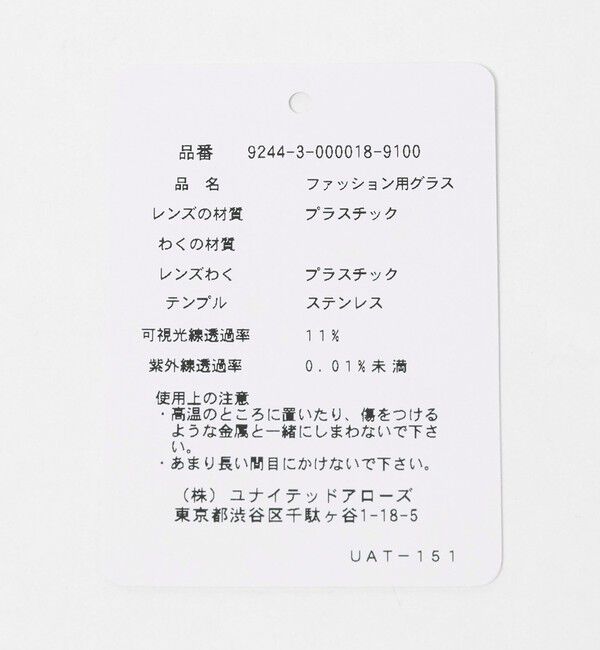 品番 9244-3-000018-9100
品 名 ファッション用グラス
レンズの材質 プラスチック
わくの材質
レンズわく プラスチック
テンプル ステンレス
可視光線透過率 11%
紫外線透過率 0.01%未満
使用上の注意
・高温のところに置いたり、傷をつける
ような金属と一緒にしまわないで下さ
い。
・あまり長い間目にかけないで下さい。
(株) ユナイテッドアローズ
東京都渋谷区千駄ヶ谷1-18-5
UAT-151